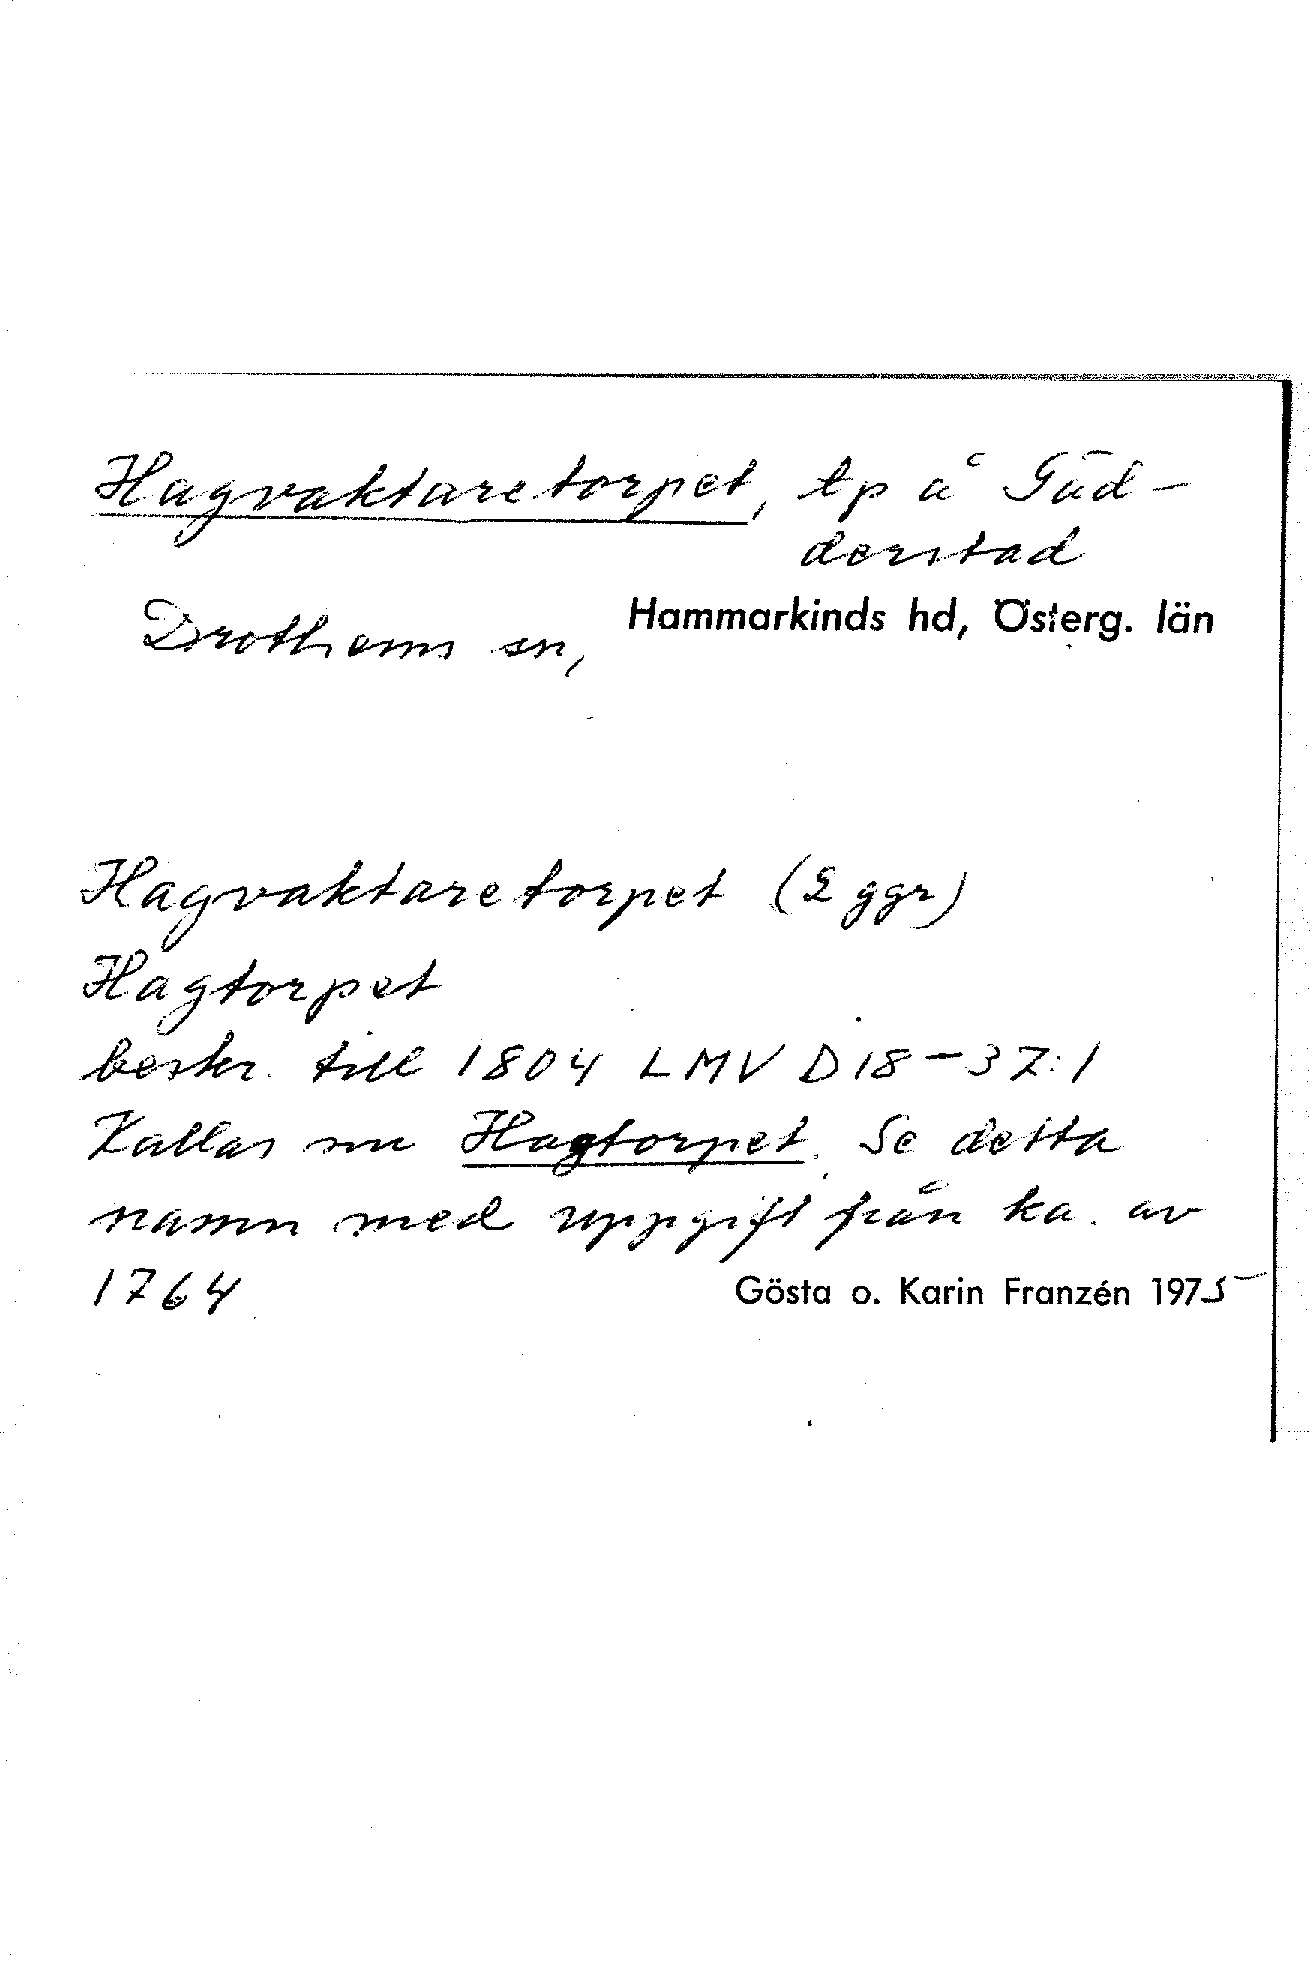 Hagvaktaretorpet, tp å Gäd-
derstad
Drothems sn, Hammarkinds hd, Österg. län
Hagvaktaretorpet (2 ggr)
Hagtorpet
beskr. till 1804 LMV D 18-37:1
Kallas nu Hagtorpet. Se detta
namn med uppgift från ka. av
1764
Gösta o. Karin Franzén 1975